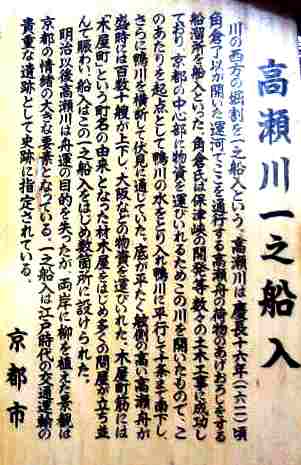 高瀬川一之船入
川の西方の堀割を一之船入という。高瀬川は慶長十六年（一六一一）頃
角倉了以が開いた運河で、ここを通行する高瀬舟の荷物のあげおろしをする
船溜所を船入といった。角倉氏は保津峡の開発等、数々の土木工事に成功し
ており、京都の中心部に物資を運びいれるためこの川を開いたもので、こ
のあたりを起点として鴨川の水をとり入れ鴨川に平行して十条まで南下し、
さらに鴨川を横断して伏見に通じていた。底が平たく舷側の高い高瀬舟が
盛時には百数十艘が上下し、大阪などの物資を運びいれた。木屋町筋には
「木屋町」という町名の由来となった材木屋をはじめ多くの問屋が立ち並
んで賑わい、船入はこの一之船入をはじめ数箇所に設けられた。
明治以後高瀬川は舟運の目的を失ったが、両岸に柳を植えた景観は
京都の情緒の大きな要素となっている。一之船入は江戸時代の交通運輸の
貴重な遺跡として史跡に指定されている。
京都市